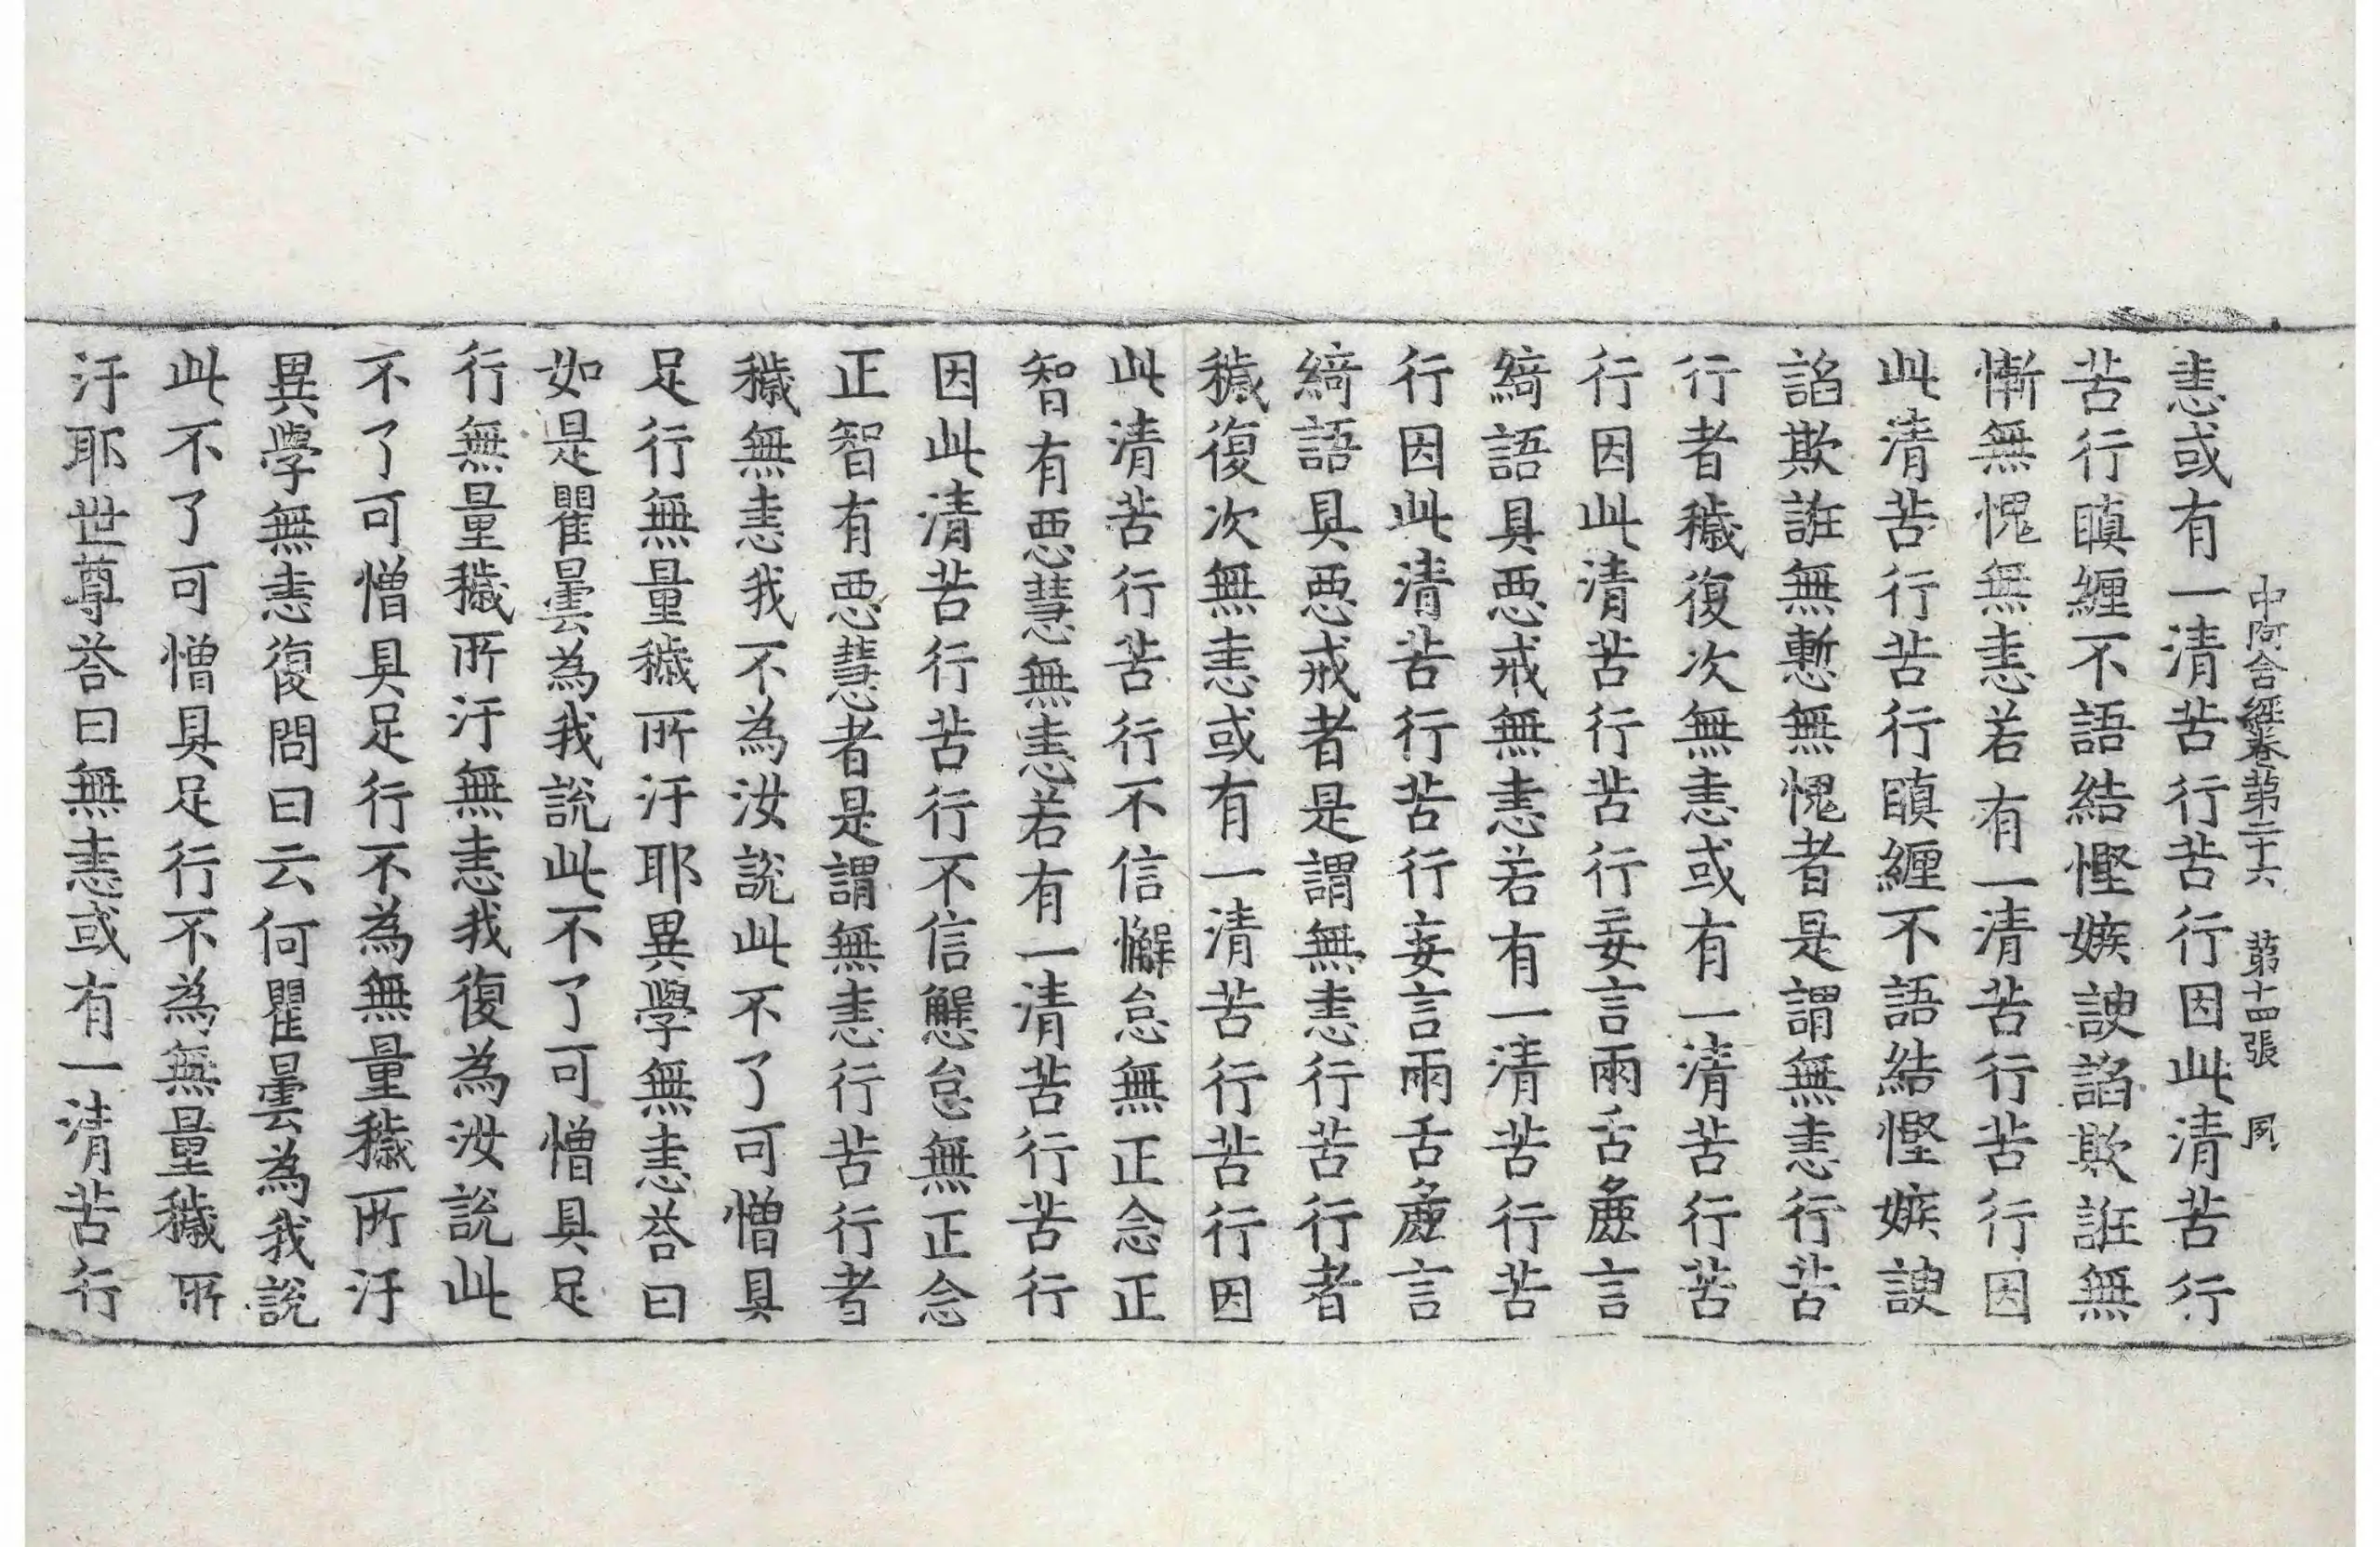 中阿含經卷第二十六　第十四張　同
恚或有一清苦行苦行因此清苦行
苦行瞋纏不語結慳嫉諛諂欺誑無
慚無愧無恚若有一清苦行苦行因
此清苦行苦行瞋纏不語結慳嫉諛
諂欺誑無慙無愧者是謂無恚行苦
行者穢復次無恚或有一清苦行苦
行因此清苦行苦行妄言兩舌麁言
綺語具惡戒無恚若有一清苦行苦
行因此清苦行苦行妄言兩舌麁言
綺語具惡戒者是謂無恚行苦行者
穢復次無恚或有一清苦行苦行因
此清苦行苦行不信懈怠無正念正
智有惡慧無恚若有一清苦行苦行
因此清苦行苦行不信懈怠無正念
正智有惡慧者是謂無恚行苦行者
穢無恚我不為汝說此不了可憎具
足行無量穢所汙耶異學無恚荅曰
如是瞿曇為我說此不了可憎具足
行無量穢所汙無恚我復為汝說此
不了可憎具足行不為無量穢所汙
異學無恚復問曰云何瞿曇為我說
此不了可憎具足行不為無量穢所
汙耶世尊荅曰無恚或有一清苦行